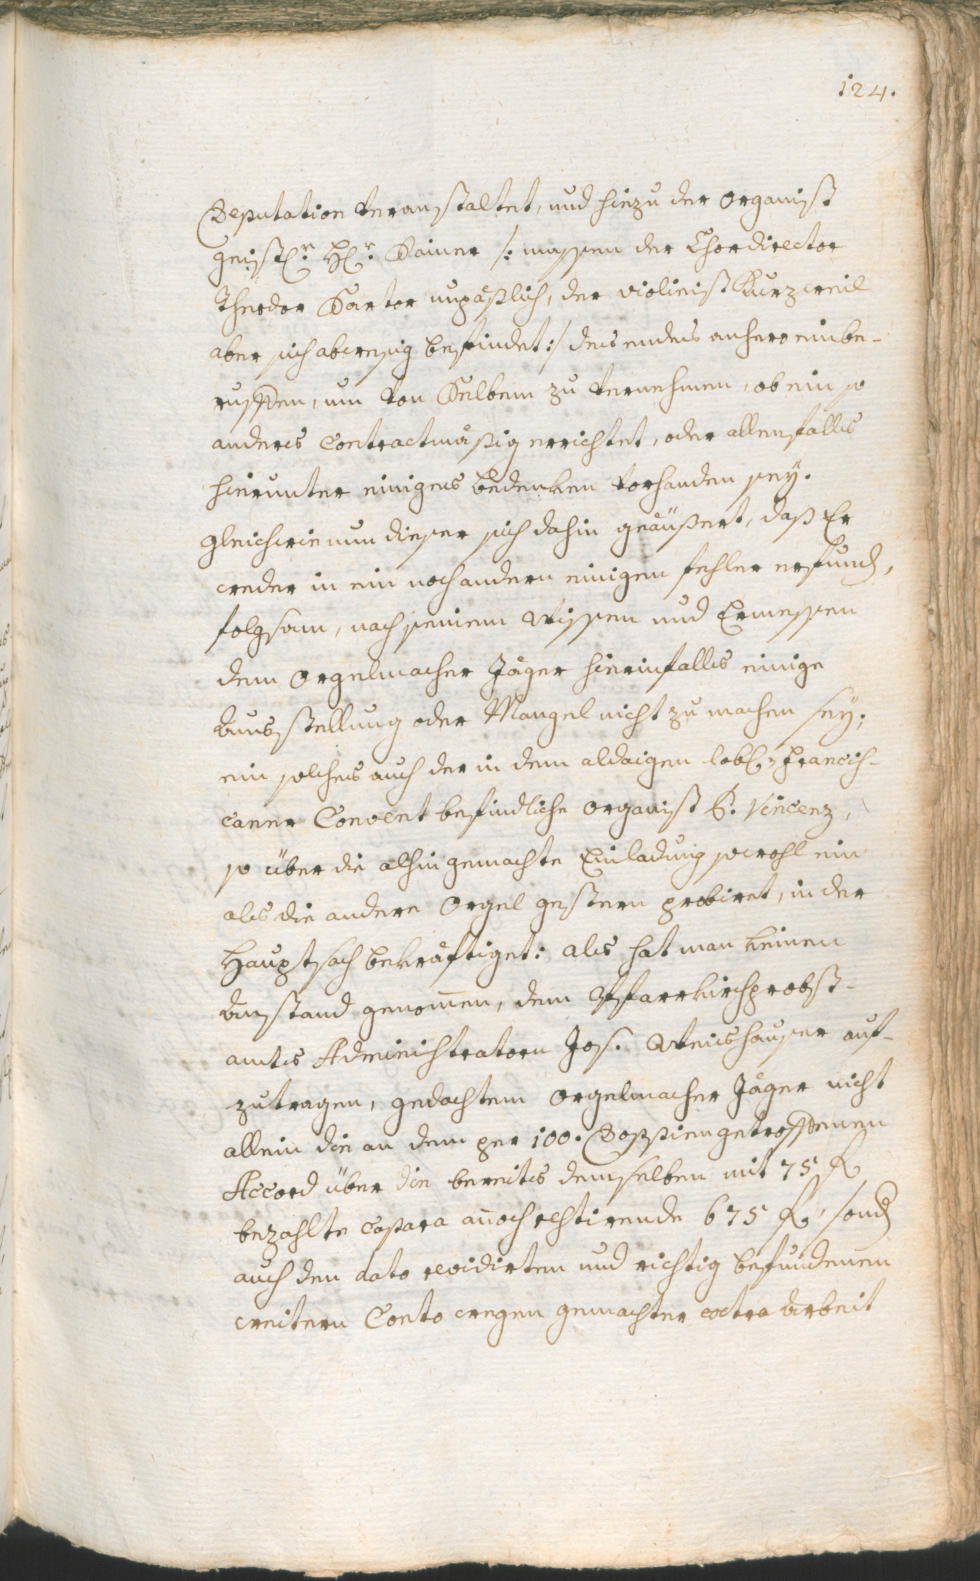 124.
Deputation veranstaltet, und hinzu der Organist
geistl:r H:r Kainer /: massen der Chordirector
Theodor Kartor unpäßlich, der Violinist Kurzweil
aber sich abwesig befindet :/ des endes anhero einbe-
ruffen, um von Selbem zu vernehmen, ob ein so
anderes Contractmäßig errichtet, oder allenfalls
hierunter einiges bedenken vorhanden sey.
Gleichwie nun dieser sich dahin geäußert, daß Er
weder in ein noch andern einigen fehler erfund,
folgsam, nach seinem Wissen und Ermessen
dem Orgelmacher Jäger hierinfalls einige
Ausstellung oder Mangel nicht zu machen sey;
ein solches auch der in dem aldaigen löbl. Francis-
caner Convent befindliche Organist P. Vincenz,
so über die alhin gemachte Einladung sowohl ein
als die andere Orgel gestern probiret, in der
Hauptsach bekräftiget: als hat man keinen
Anstand genommen, dem Pfarrkirchprobst-
amts Administratorn Jos. Weishauser auf-
zutragen, gedachtem Orgelmacher Jäger nicht
allein die an dem per 100. Doppien getroffenen
Accord über die bereits demselben mit 75 f
bezahlte Caparra annoch restirende 675 f, sond
auch den dato revidirten und richtig befundenen
weitern Conto wegen gemachter extra Arbeit